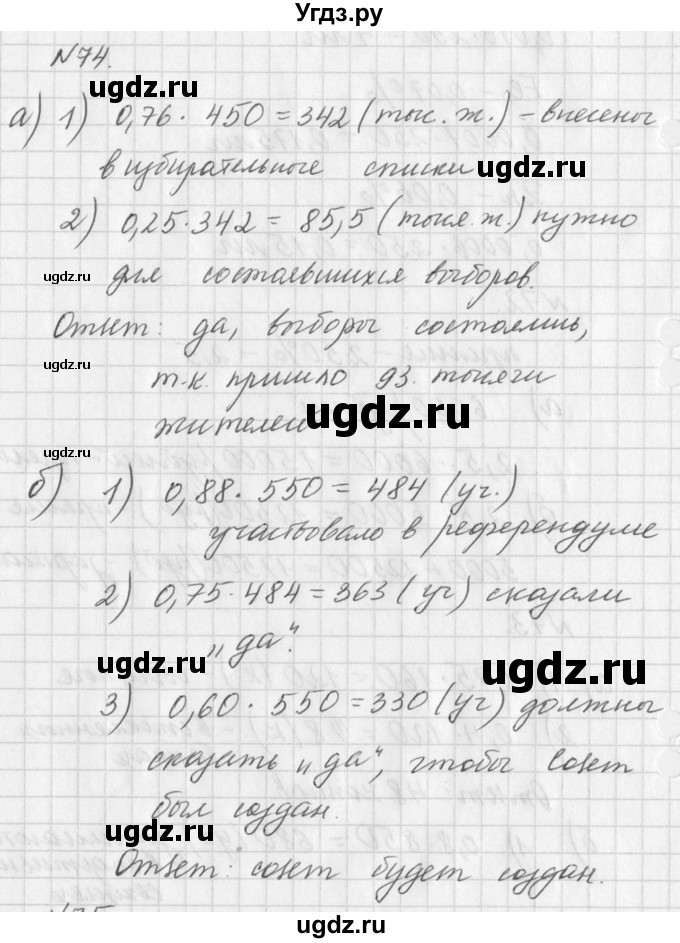 Угдз.ру
№74.
ugdz.ru
а) 1) 0,76 · 450 = 342 (тыс. ж.) - внесены
в избирательные списки
ugdz.ru
2) 0,25 · 342 = 85,5 (тыся. ж.) нужно
ugdz.ru
для состоявшихся выборов.
ugdz.ru
Ответ: да, выборы состоялись,
ugdz.ru
т.к. пришло 93. тысячи
жителей
ugdz.ru
б) 1) 0,88 · 550 = 484 (уч.)
ugdz.ru
участвовало в референдуме
2) 0,75 · 484 = 363 (уч) сказали
„да“.
ugdz.ru
ugdz.ru
3) 0,60 · 550 = 330 (уч) должны
сказать „да“, чтобы совет
был создан.
ugdz.ru
Ответ: совет будет создан.
№75
ugdz.ru